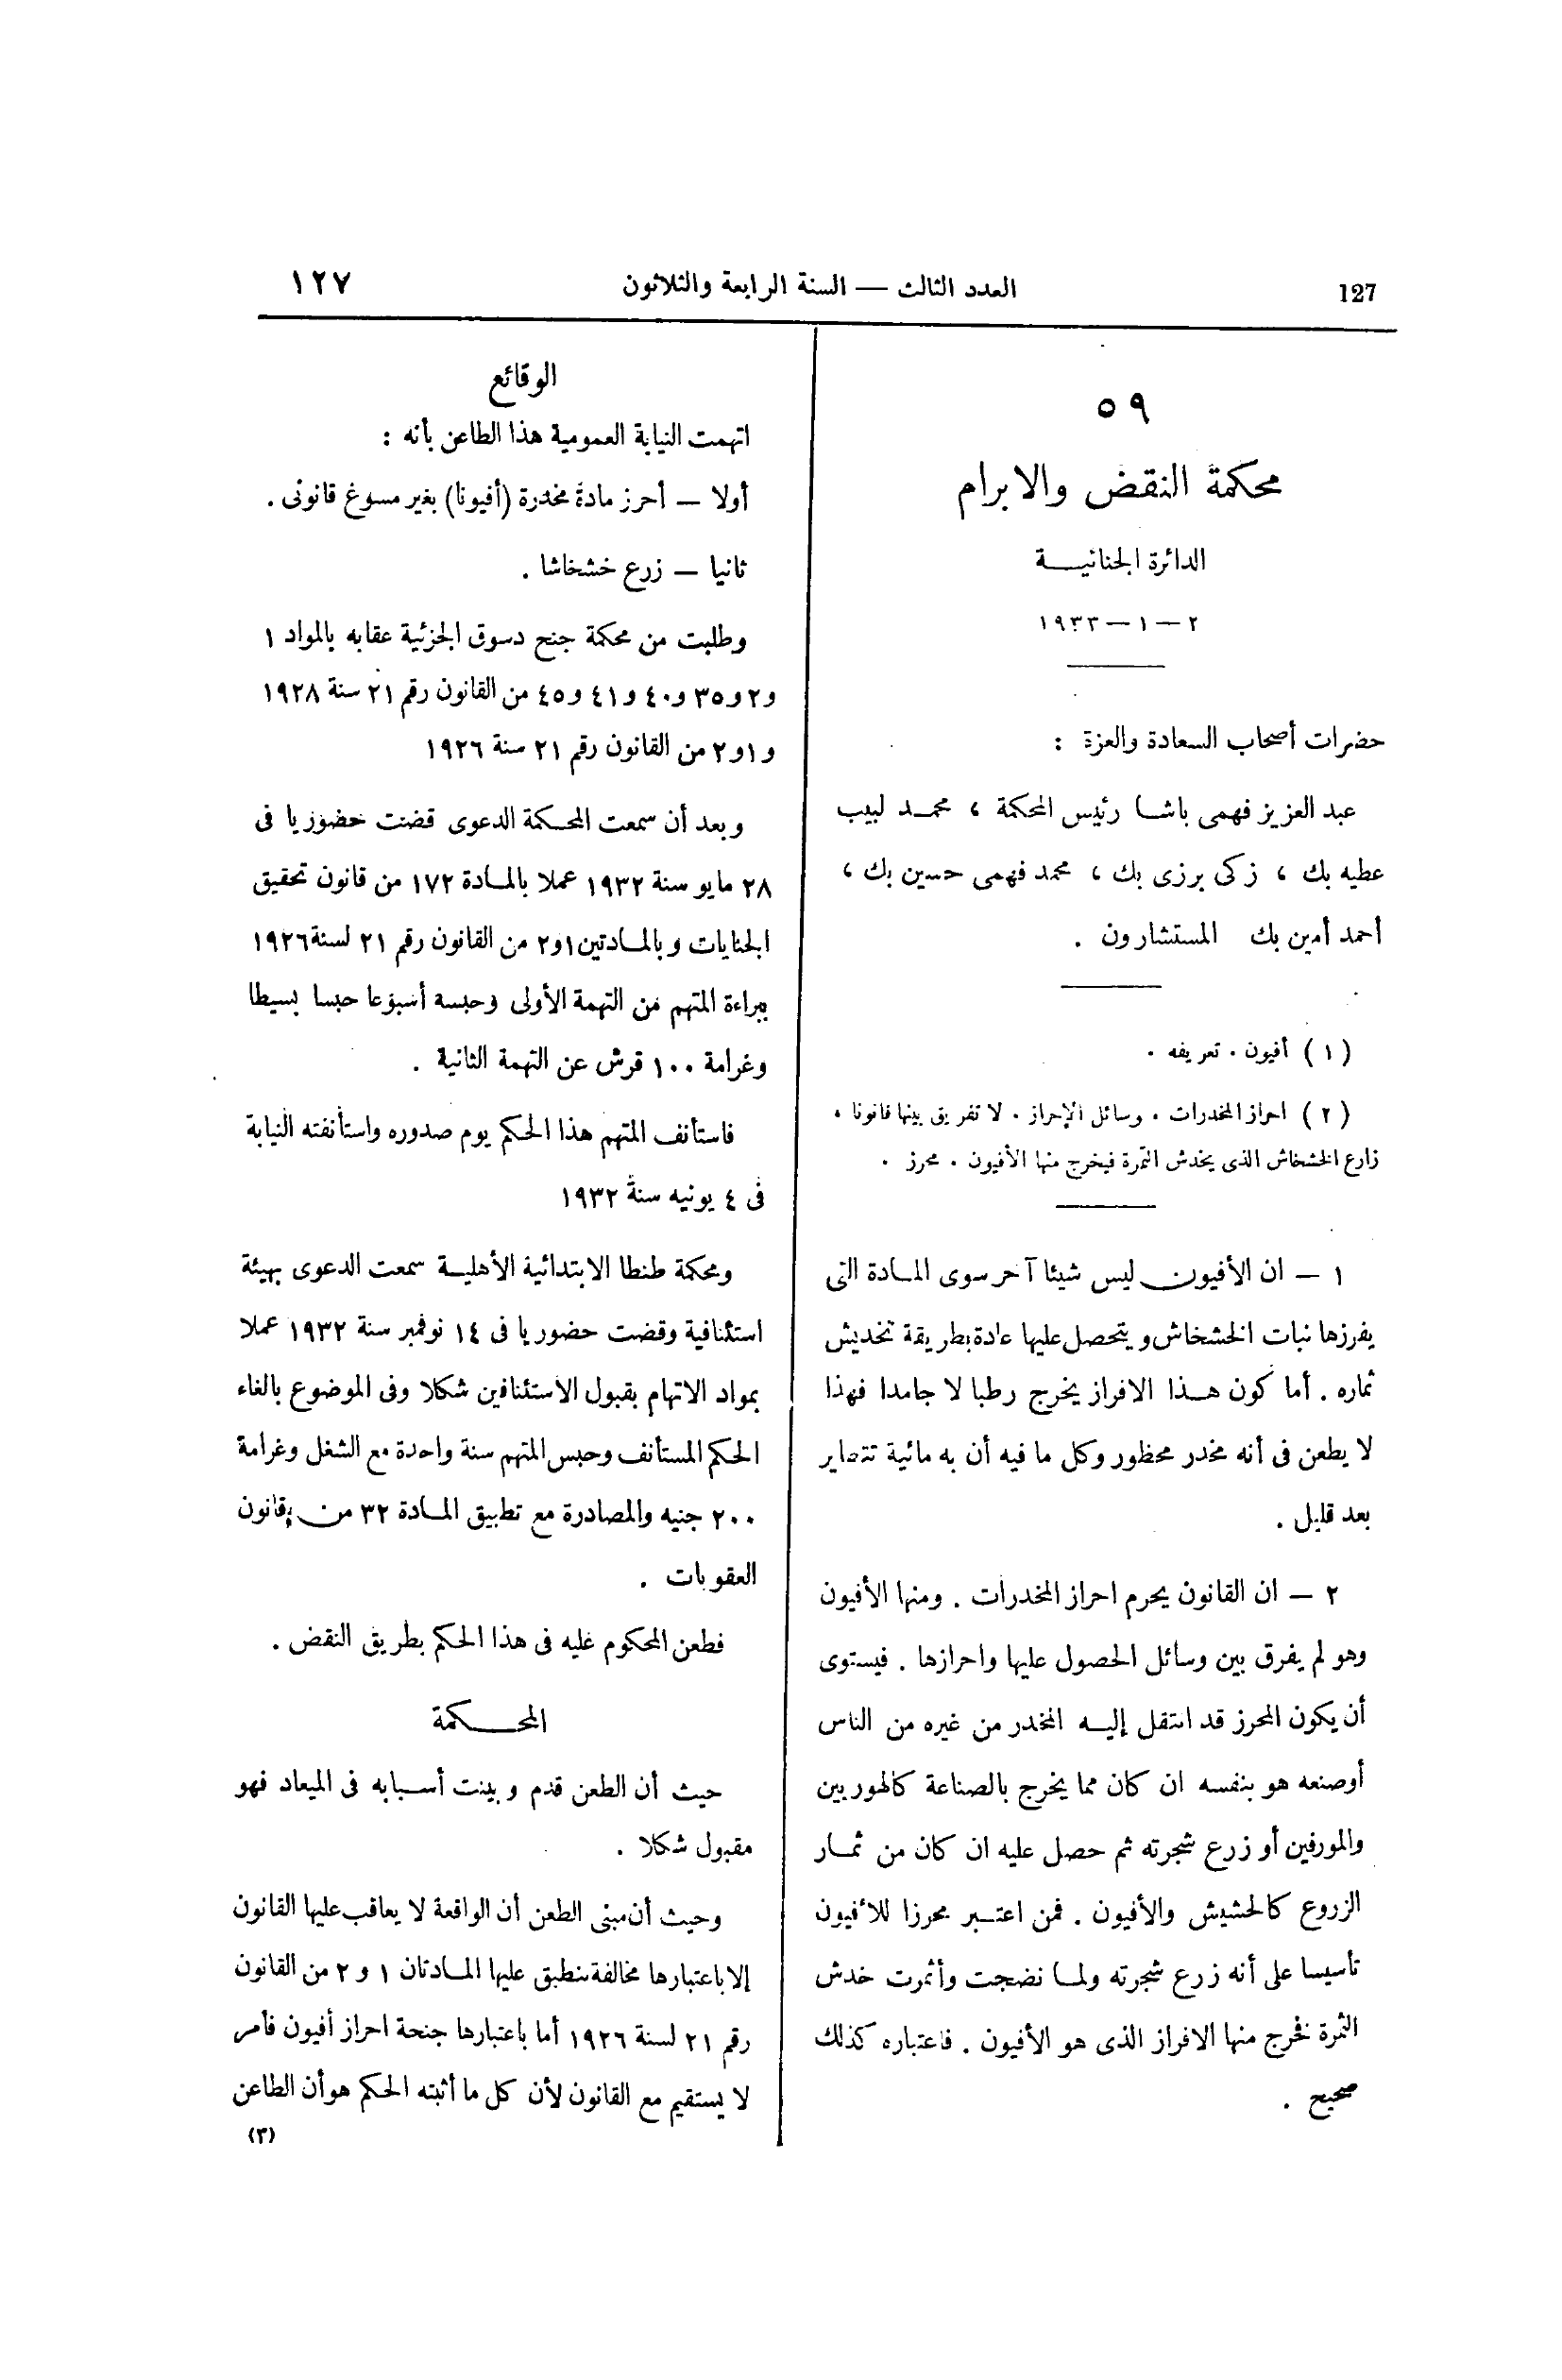 127
العدد الثالث — السنة الرابعة والثلاثون
١٢٧
٥٩
محكمة النقض والابرام
الدائرة الجنائية
٢ — ١ — ١٩٣٣
حضرات أصحاب السعادة والعزة :
عبد العزيز فهمى باشا رئيس المحكمة ، محمد لبيب
عطيه بك ، زكى برزى بك ، محمد فهمى حسين بك ،
أحمد أمين بك المستشارون .
( ١ ) أفيون . تعريفه .
( ٢ ) احراز المخدرات . وسائل الإحراز . لا تفريق بينها قانونا .
زارع الخشخاش الذى يخدش الثمرة فيخرج منها الأفيون . محرز .
١ — ان الأفيون ليس شيئا آخر سوى المادة التى
يفرزها نبات الخشخاش ويتحصل عليها عادة بطريقة تخديش
ثماره . أما كون هذا الافراز يخرج رطبا لا جامدا فهذا
لا يطعن فى أنه مخدر محظور وكل ما فيه أن به مائية تتطاير
بعد قليل .
٢ — ان القانون يحرم احراز المخدرات . ومنها الأفيون
وهو لم يفرق بين وسائل الحصول عليها واحرازها . فيستوى
أن يكون المحرز قد انتقل إليه المخدر من غيره من الناس
أوصنعه هو بنفسه ان كان مما يخرج بالصناعة كالهوربين
والمورفين أو زرع شجرته ثم حصل عليه ان كان من ثمار
الزروع كالحشيش والأفيون . فمن اعتبر محرزا للأفيون
تأسيسا على أنه زرع شجرته ولما نضجت وأثمرت خدش
الثمرة فخرج منها الافراز الذى هو الأفيون . فاعتباره كذلك
صحيح .
الوقائع
اتهمت النيابة العمومية هذا الطاعن بأنه :
أولا — أحرز مادة مخدرة (أفيونا) بغير مسوغ قانونى .
ثانيا — زرع خشخاشا .
وطلبت من محكمة جنح دسوق الجزئية عقابه بالمواد ١
و٢ و٣٥ و٤٠ و٤١ و٤٥ من القانون رقم ٢١ سنة ١٩٢٨
و١و٢ من القانون رقم ٢١ سنة ١٩٢٦
وبعد أن سمعت المحكمة الدعوى قضت حضوريا فى
٢٨ مايو سنة ١٩٣٢ عملا بالمادة ١٧٢ من قانون تحقيق
الجنايات وبالمادتين ١و٢ من القانون رقم ٢١ لسنة ١٩٢٦
ببراءة المتهم من التهمة الأولى وحبسه أسبوعا حبسا بسيطا
وغرامة ١٠٠ قرش عن التهمة الثانية .
فاستأنف المتهم هذا الحكم يوم صدوره واستأنفته النيابة
فى ٤ يونيه سنة ١٩٣٢
ومحكمة طنطا الابتدائية الأهلية سمعت الدعوى بهيئة
استئنافية وقضت حضوريا فى ١٤ نوفمبر سنة ١٩٣٢ عملا
بمواد الاتهام بقبول الاستئنافين شكلا وفى الموضوع بالغاء
الحكم المستأنف وحبس المتهم سنة واحدة مع الشغل وغرامة
٢٠٠ جنيه والمصادرة مع تطبيق المادة ٣٢ من قانون
العقوبات .
فطعن المحكوم عليه فى هذا الحكم بطريق النقض .
المحكمة
حيث أن الطعن قدم وبينت أسبابه فى الميعاد فهو
مقبول شكلا .
وحيث أن مبنى الطعن أن الواقعة لا يعاقب عليها القانون
إلا باعتبارها مخالفة تنطبق عليها المادتان ١ و ٢ من القانون
رقم ٢١ لسنة ١٩٢٦ أما باعتبارها جنحة احراز أفيون فأمر
لا يستقيم مع القانون لأن كل ما أثبته الحكم هو أن الطاعن
(٣)